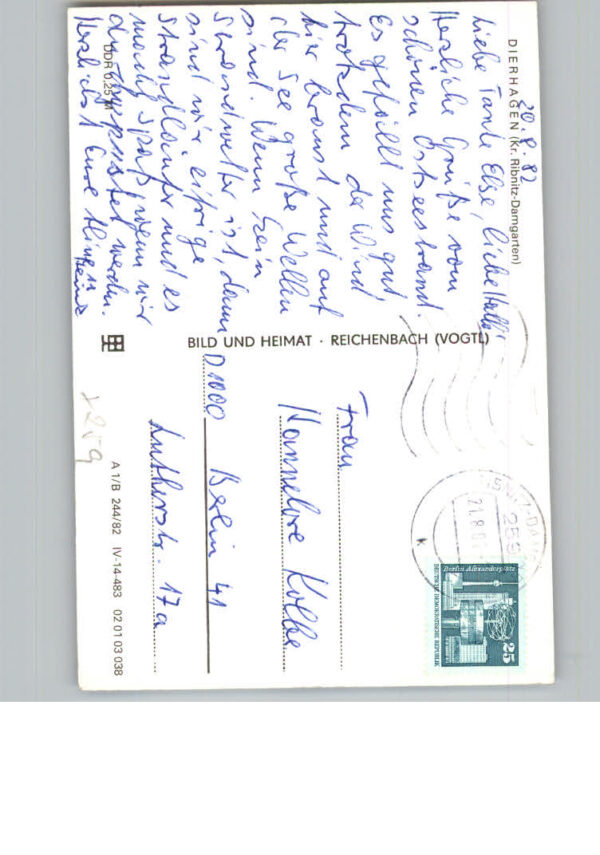 DIERHAGEN (Kr. Ribnitz-Damgarten)
20.8.82
Liebe Tante Else, liebe
Herzliche Grüße vom
schönen Ostseestrand.
Es gefällt uns gut
trotzdem der Wind
hier braust und auf
der See große Wellen
sind. Wenn kein
Strandwetter ist, dann
sind wir eifrige
Strandläufer und es
macht Spaß wenn wir
durchgepustet werden.
Herzlichst Eure
Heinz
DDR 0,25 M
BILD UND HEIMAT · REICHENBACH (VOGTL)
Frau
Hannelore Kolbe
D 1000 Berlin 41
Lutherstr. 17a
A 1/B 244/82 IV-14-483 02 01 03 038
259
21.8.8
k
Berlin, Alexanderplatz
DEUTSCHE DEMOKRATISCHE REPUBLIK
25